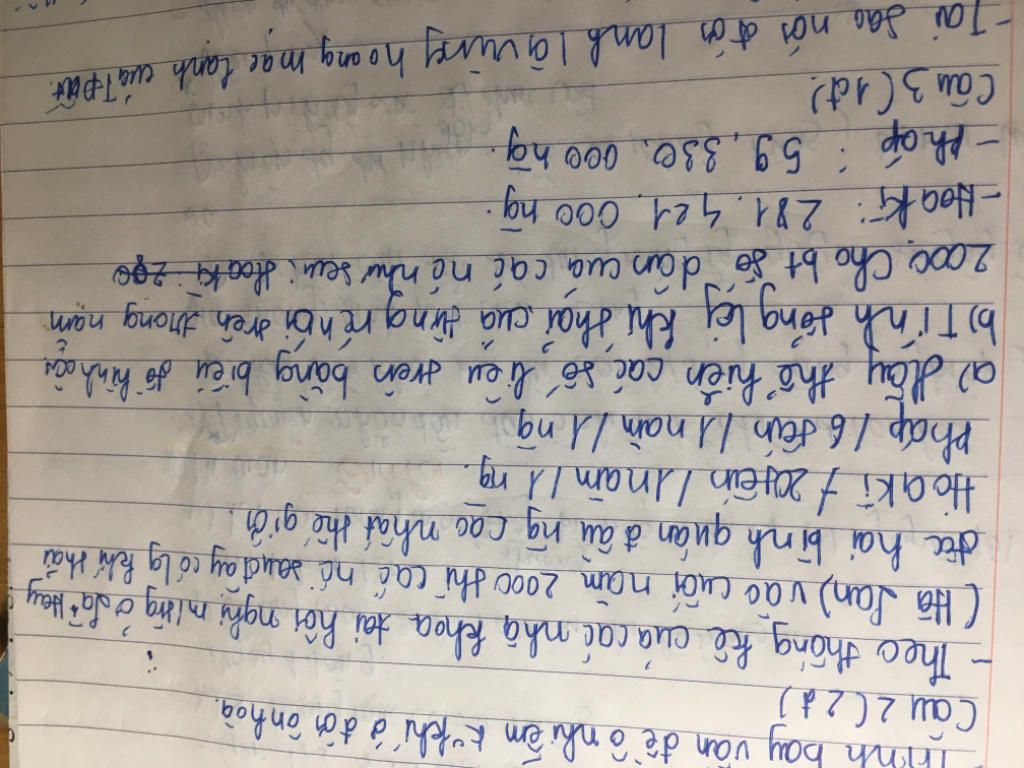 Trình bày vấn đề ô nhiễm k² khí ở đới ôn hoà.
Câu 2 (2đ)
- Theo thống kê của các nhà khoa tại hội nghị m/trg ở La Hay
(Hà Lan) vào cuối năm 2000 thì các nc sau đây có lg khí thải
độc hại bình quân đầu ng cao nhất thế giới.
Hoa Kì / 20 tấn / 1 năm / 1 ng.
Pháp / 6 tấn / 1 năm / 1 ng
a) Hãy thể hiện các số liệu trên bằng biểu đồ hình cột
b) Tính tổng lg khí thải của từng nc nói trên trong năm
2000. Cho bt số dân của các nc như sau: Hoa Kì 200
- Hoa Kì : 281. 421. 000 ng.
- Pháp : 59, 330. 000 ng.
Câu 3 (1đ)
- Tại sao nói đới lạnh là vùng hoang mạc lạnh của TĐất.